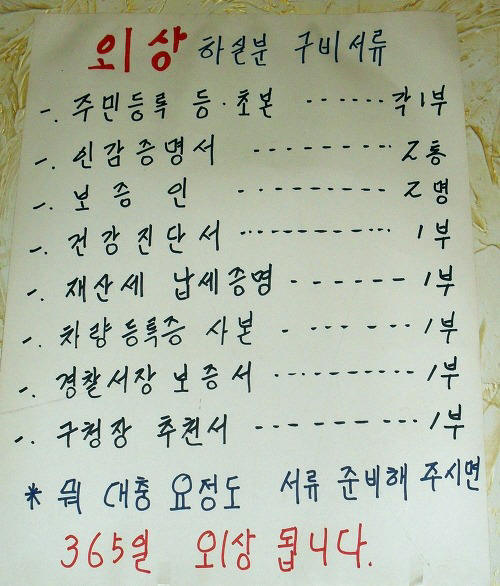 외상 하실분 구비서류
-. 주민등록 등·초본 ······ 각1부
-. 인감증명서 --------- 2통
-. 보 증 인 --------- 2명
-. 건강진단서 ---------- 1부
-. 재산세 납세증명 ------ 1부
-. 차량등록증 사본 ------ 1부
-. 경찰서장 보증서 -------- 1부
-. 구청장 추천서 -------- 1부
* 뭐 대충 요정도 서류 준비해 주시면
365일 외상 됩니다.